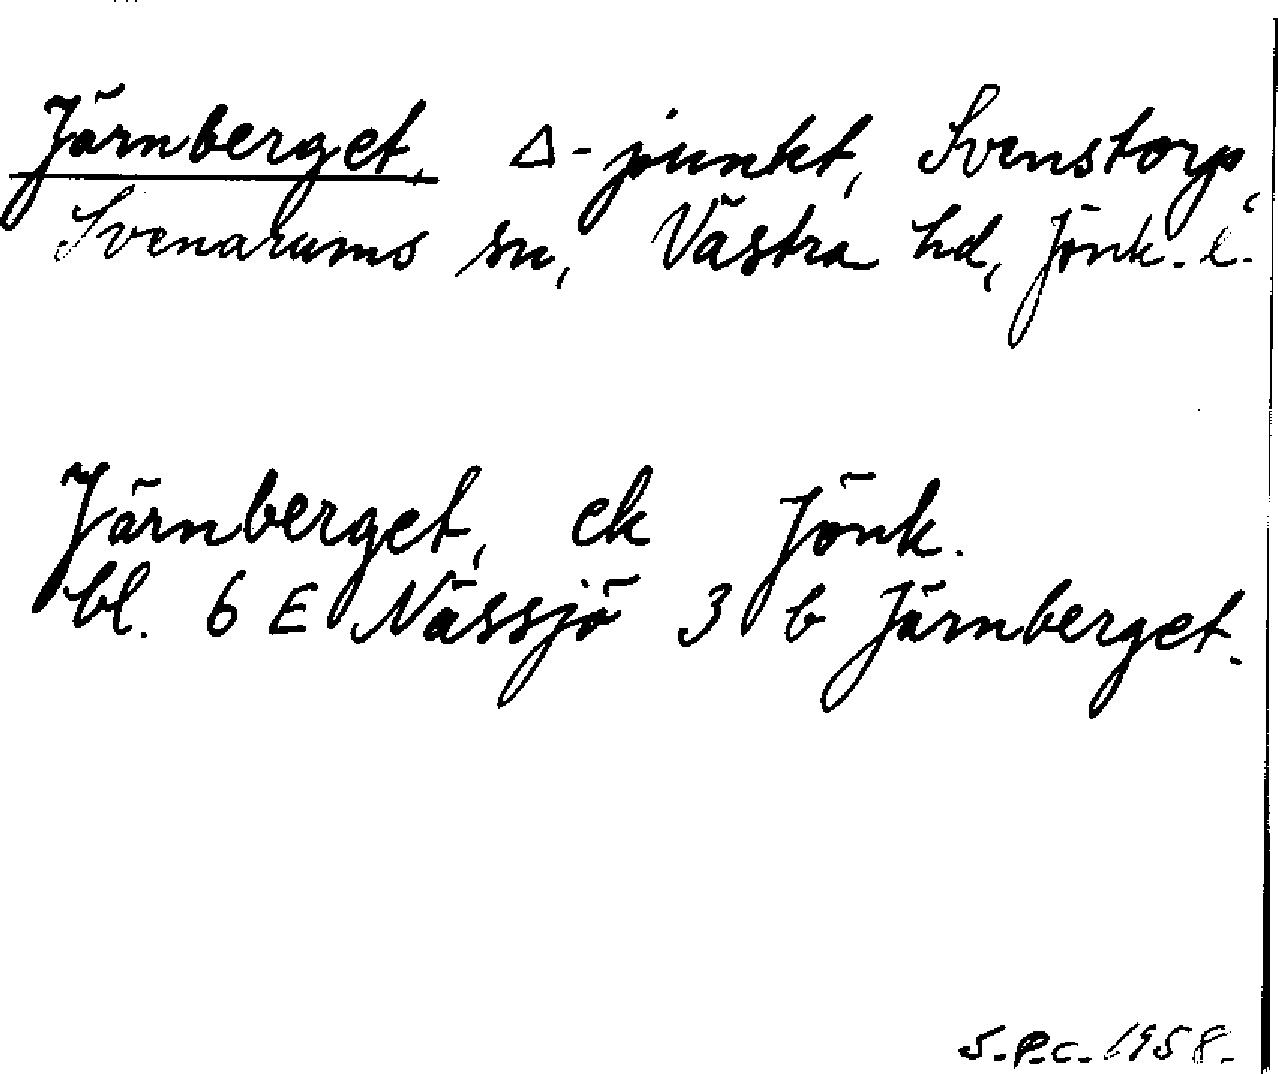 Järnberget, Δ-punkt, Svenstorp,
Svenarums sn, Västra hd, Jönk. l.
Järnberget, ek Jönk.
bl. 6 E Nässjö 3 b Järnberget.
S.P.C. 1958.